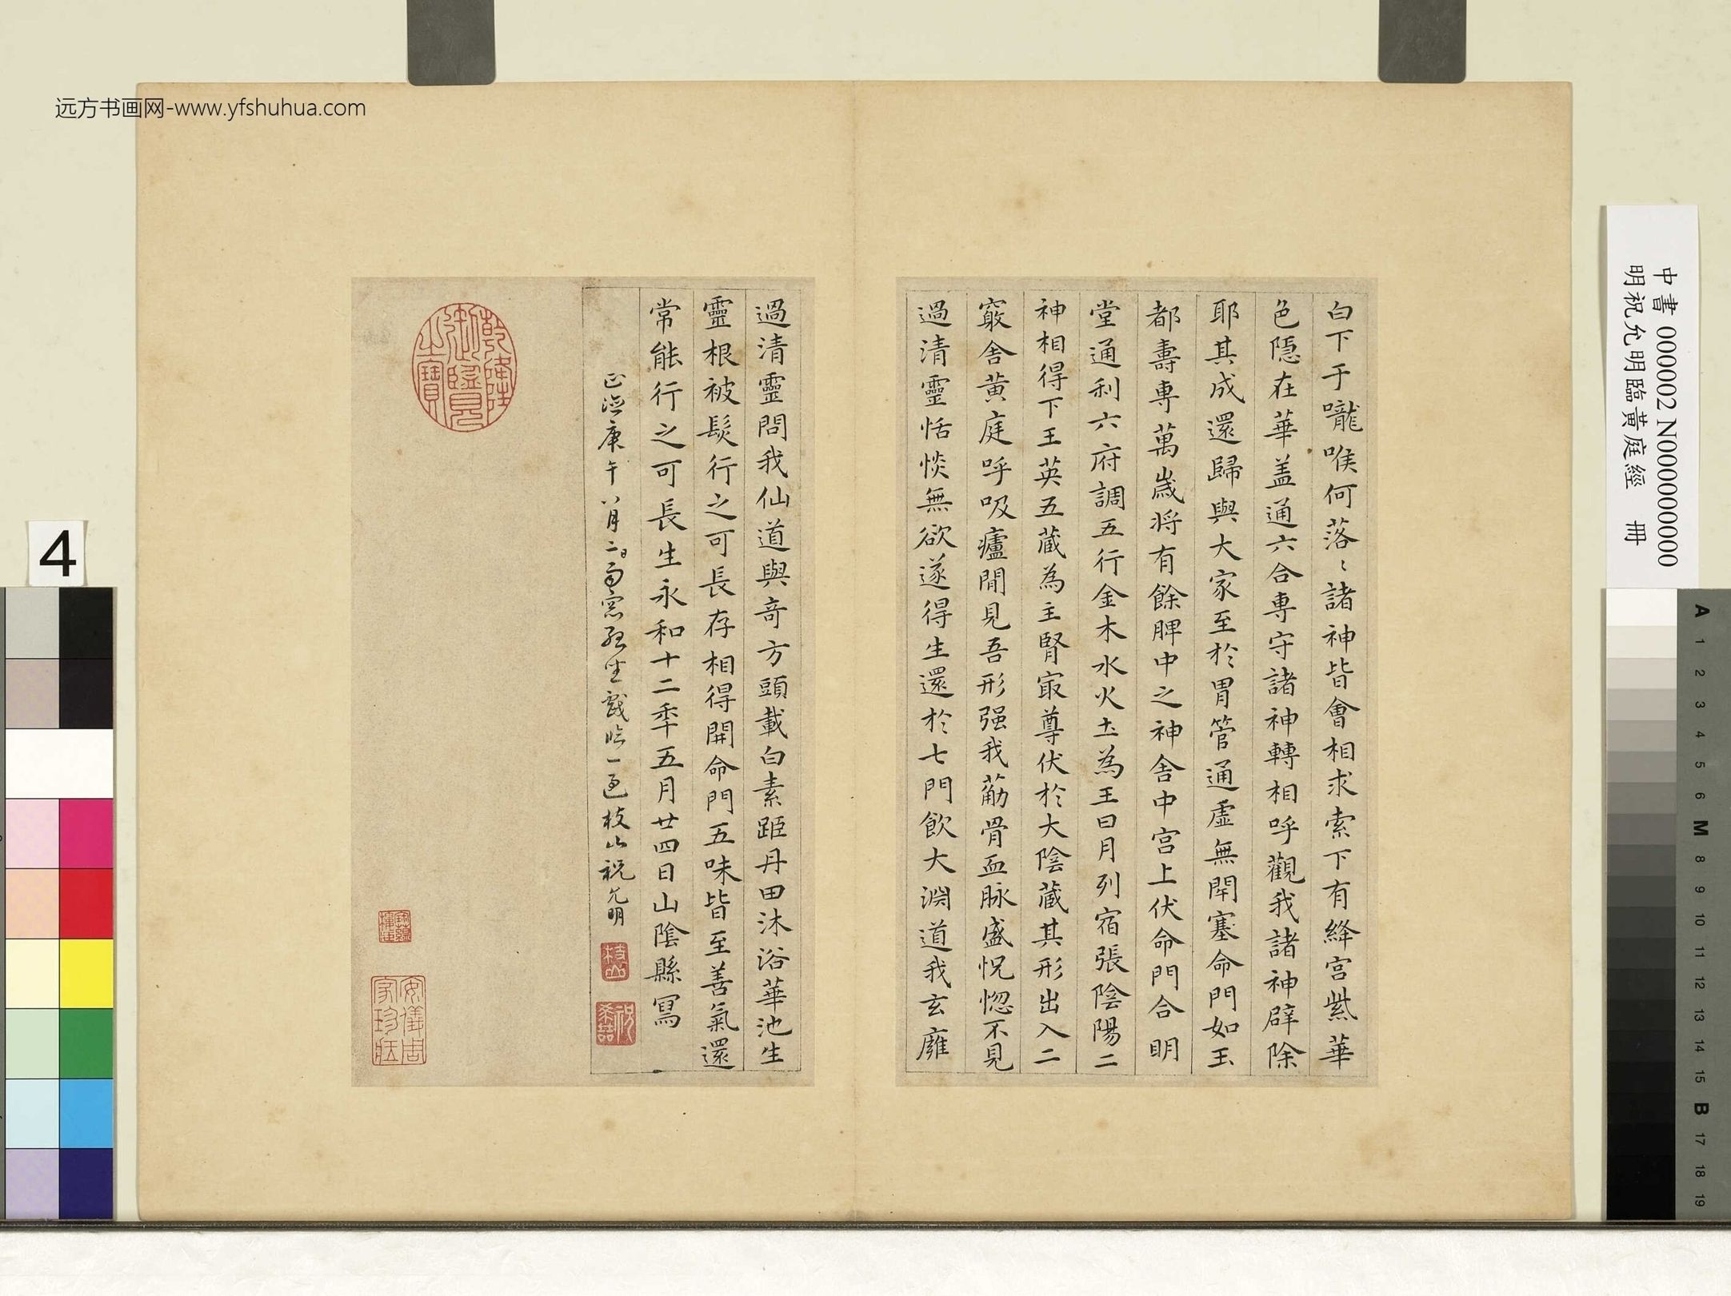 远方书画网-www.yfshuhua.com
中書 000002 N000000000
明祝允明臨黃庭經 冊
白下于嚨喉何落〻諸神皆會相求索下有絳宮紫華
色隱在華盖通六合專守諸神轉相呼觀我諸神辟除
耶其成還歸與大家至於胃管通虛無閈塞命門如玉
都壽專萬歲将有餘脾中之神舍中宮上伏命門合明
堂通利六府調五行金木水火土為王日月列宿張陰陽二
神相得下王英五藏為主腎㝡尊伏於大陰藏其形出入二
竅舍黃庭呼吸廬間見吾形强我莇骨血脉盛怳惚不見
過清靈恬惔無欲遂得生還於七門飲大淵道我玄廱
過清靈問我仙道與竒方頭載白素距丹田沐浴華池生
靈根被髮行之可長存相得開命門五味皆至善氣還
常能行之可長生永和十二秊五月廿四日山陰縣寫
正德庚午八月二日雨窓孤坐戲臨一過枝山祝允明
枝山
祝希喆
乾隆御覽之寶
安儀周家珍藏
4
A
1
2
3
4
5
6
M
8
9
10
11
12
13
14
15
B
17
18
19